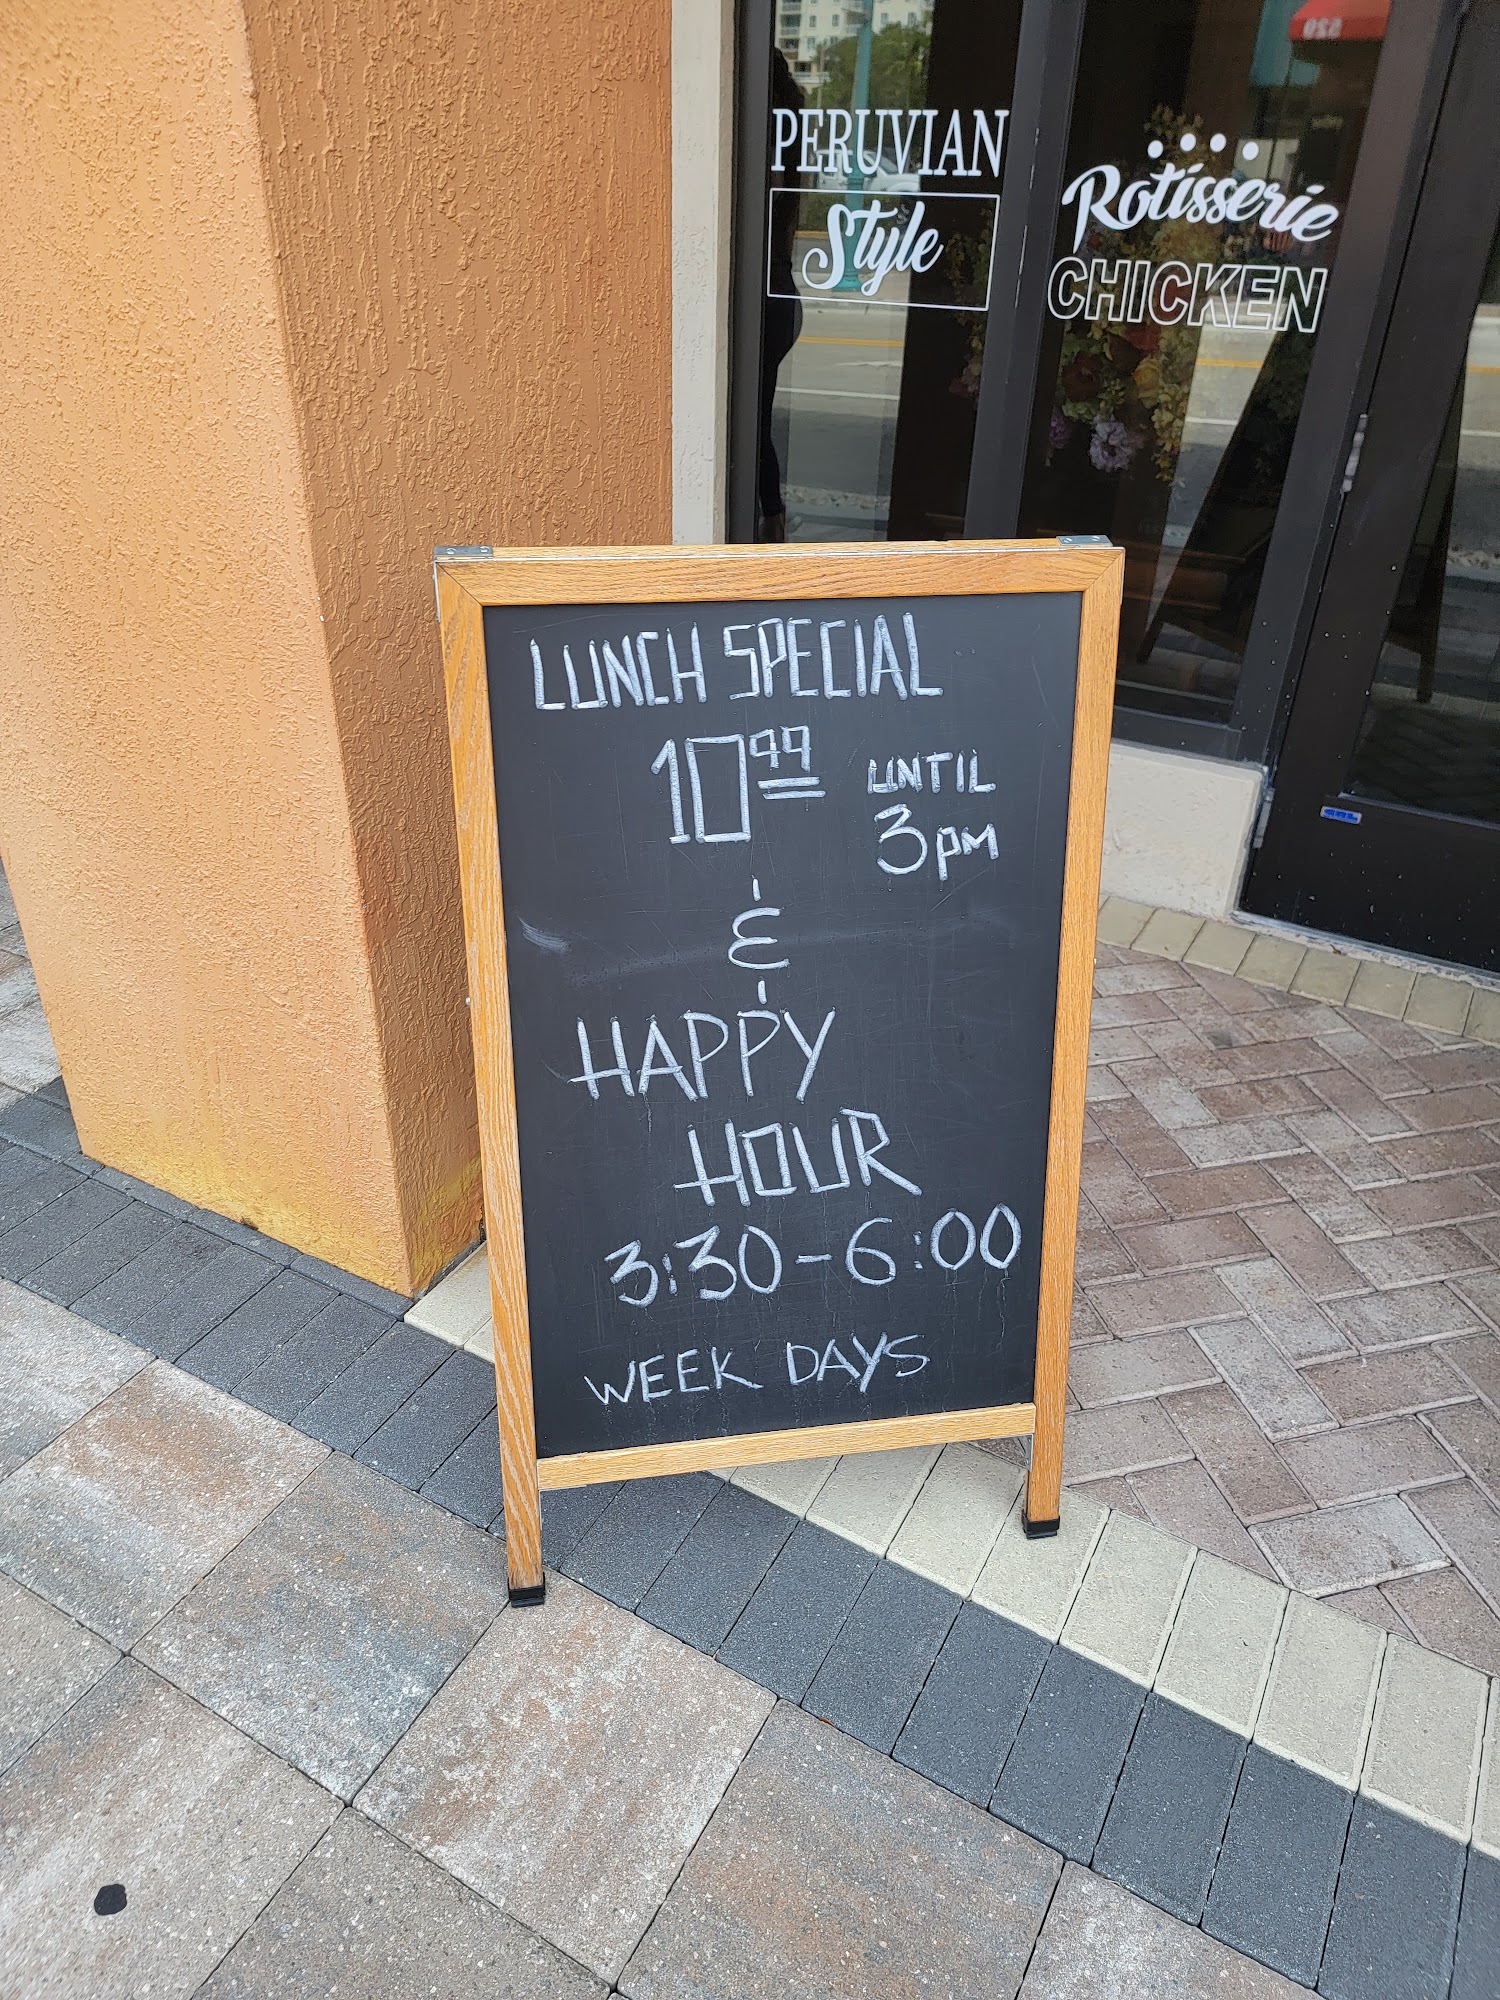 PERUVIAN
Style
Rotisserie
CHICKEN
520
LUNCH SPECIAL
10 99 UNTIL
3PM
&
HAPPY
HOUR
3:30-6:00
WEEK DAYS